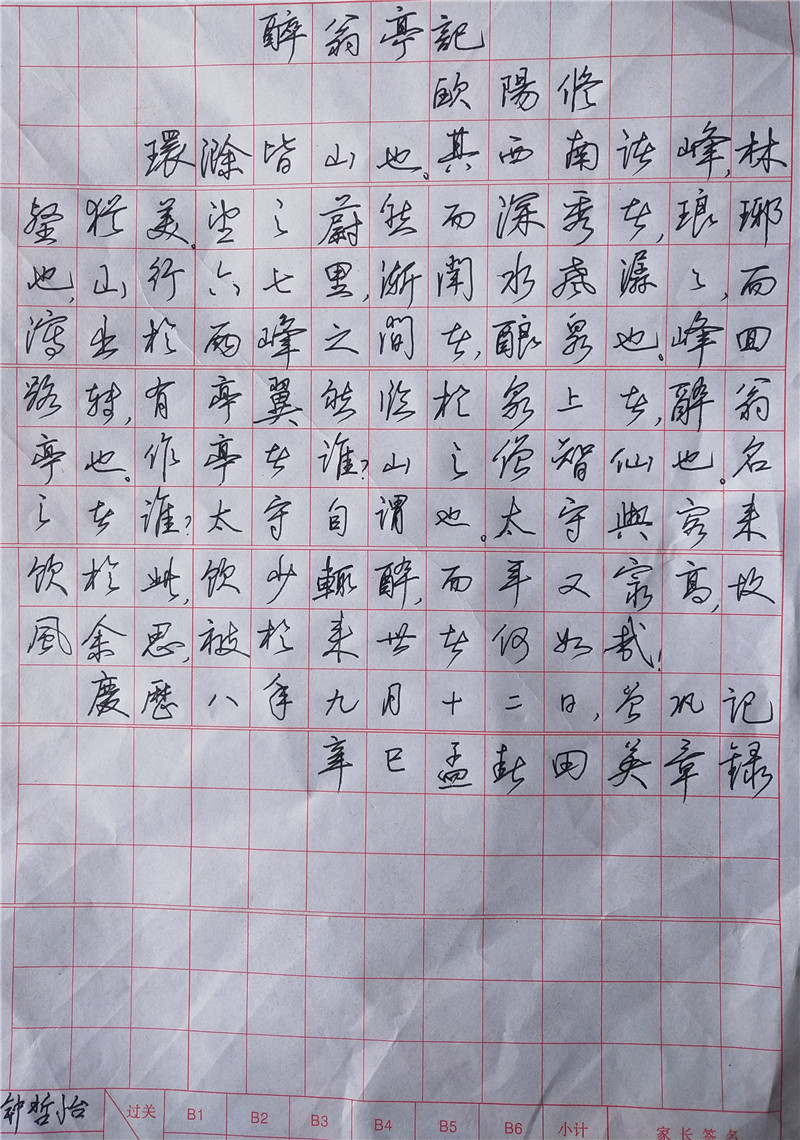 醉翁亭記
欧陽修
環滁皆山也。其西南诸峰,林
壑犹美。望之蔚然而深秀者,琅琊
也,山行六七里,渐闻水声潺之,而
泻出於两峰之间者,酿泉也。峰回
路转,有亭翼然临於泉上者,醉翁
亭也。作亭者谁?山之僧智仙也。名
之者谁?太守自谓也。太守與客来
饮於此,饮少輒醉,而年又最高,故
風余思,被於来世者何如哉!
慶歷八年九月十二日,曾巩记
辛巳孟春田英章録
钟哲怡
过关 B1 B2 B3 B4 B5 B6 小计 家长签名